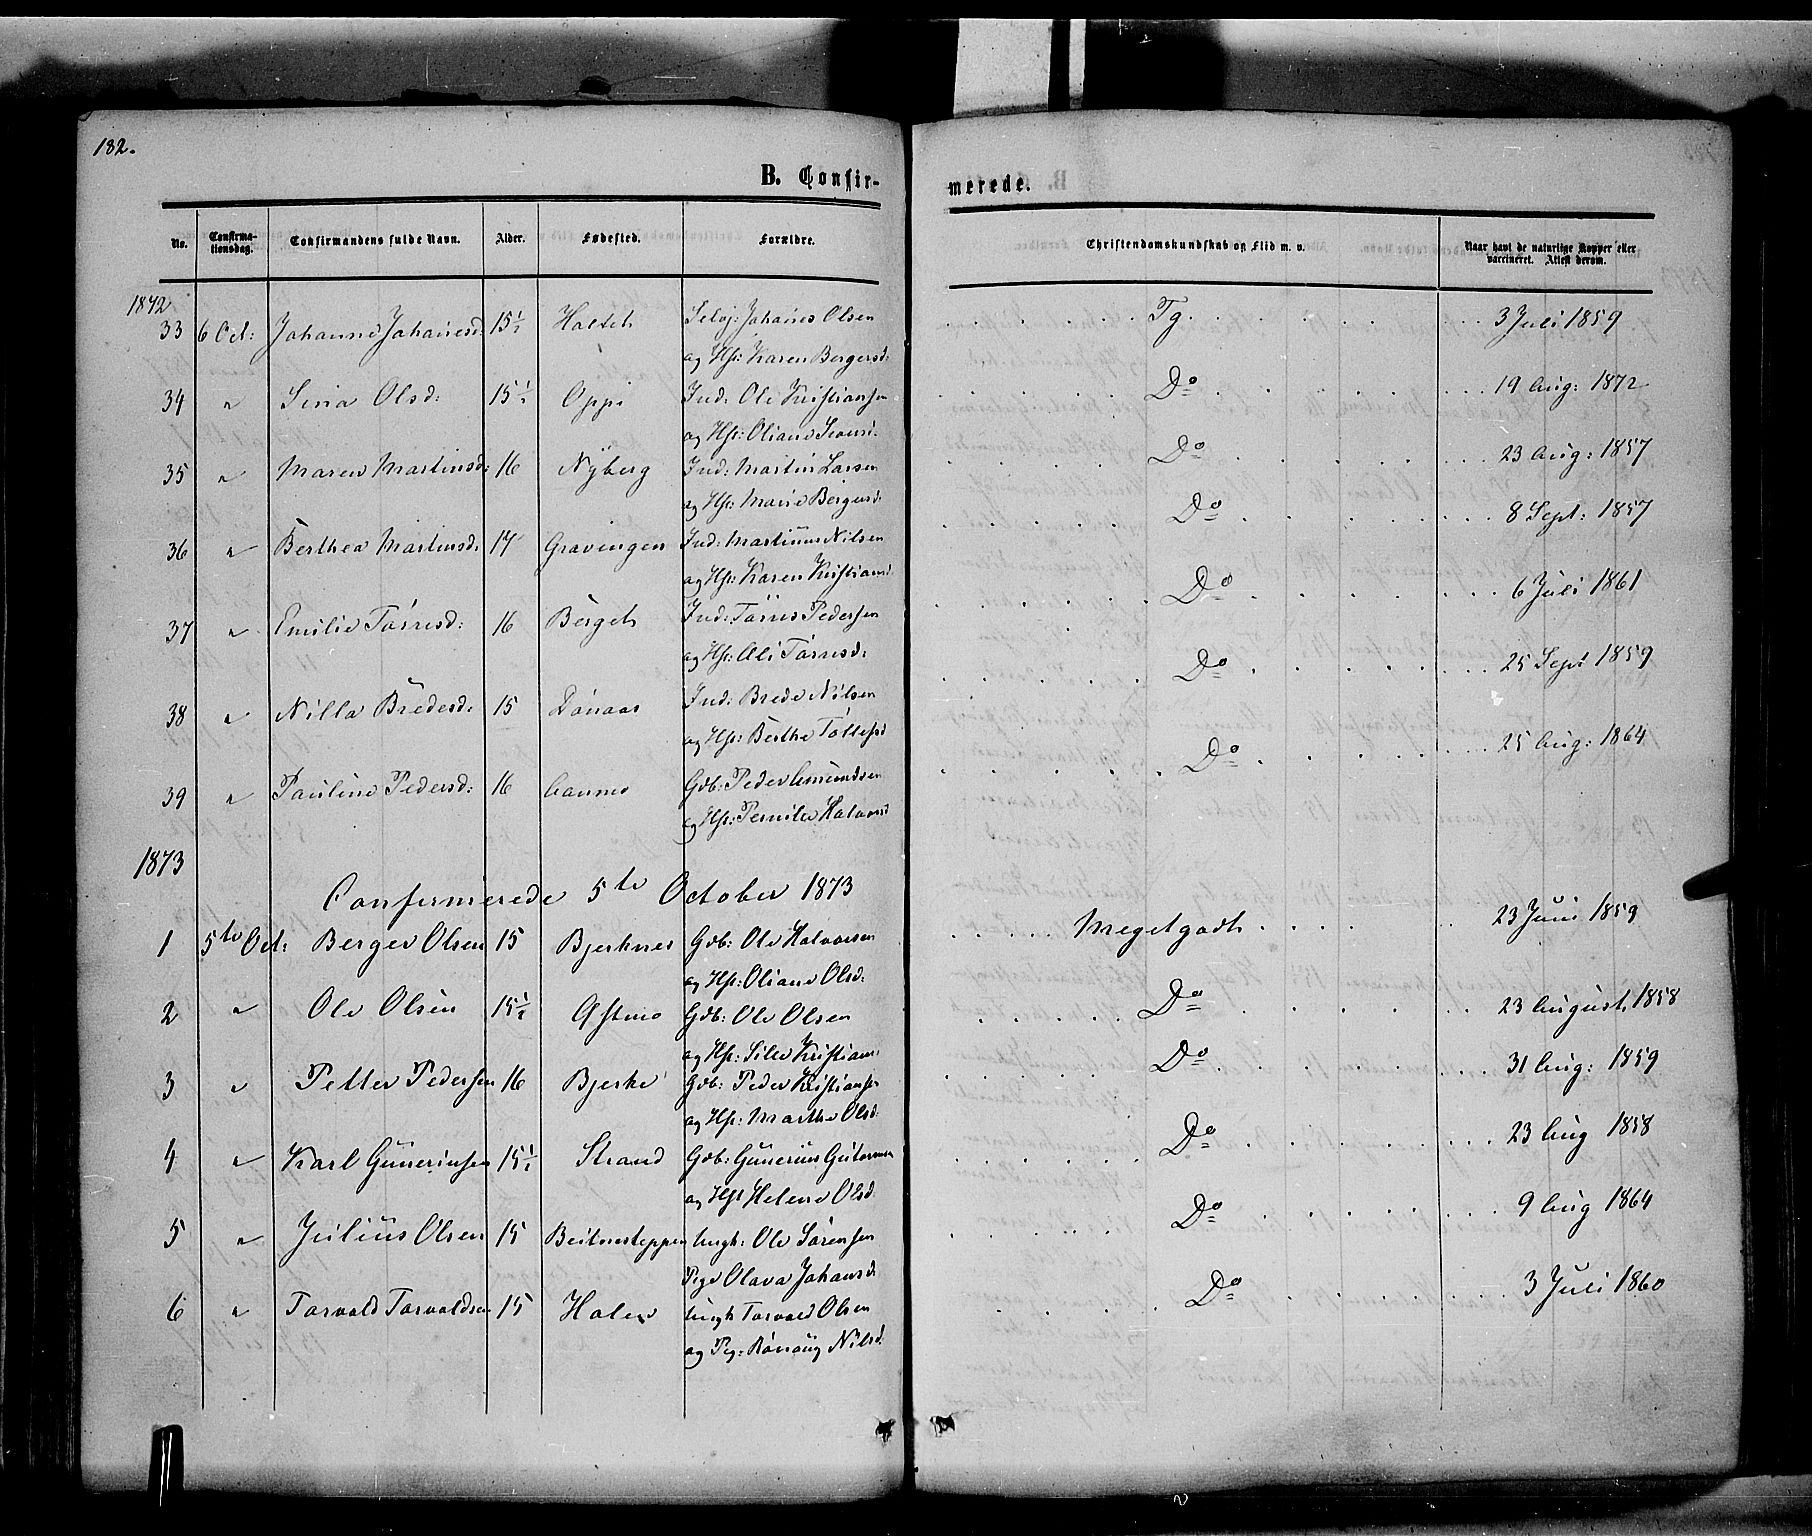 182.
B. Confir-
merede.
No. Confirma-tionsdag. Confirmandens fulde Navn. Alder. Fødested. Forældre. Christendomskundskab og Flid m. v. Naar havt de naturlige Kopper eller vaccineret. Attest derom.
1872
33 6 Oct: Johanne Johanesd: 15½ Holteh Selvj: Johanes Olsen Tg. 3 Juli 1859
og Hst: Karen Bergersd:
34 " Sina Olsd: 15½ Oppi Ind: Ole Kristiansen Do 19 Aug: 1872
og Hst: Oliane
35 " Maren Martinsd: 16 Nyberg Ind: Martin Larsen Do 23 Aug: 1857
og Hst: Marie Bergersd:
36 " Berthea Martinsd: 17 Gravingen Ind: Martinus Nilsen Do 8 Sept: 1857
og Hst: Karen Kristiansd:
37 " Emilie Törresd: 16 Berget Ind: Törres Pedersen Do 6 Juli 1861
og Hst: Ali Törresd:
38 " Nilla Bredesd: 15 Dönaas Ind: Brede Nilsen Do 25 Sept 1859
og Hst: Berthe Tollefsd
39 " Pauline Pedersd: 16 Gdb: Peder Amundsen Do 25 Aug: 1864
og Hst: Pernile Halvorsd
1873
Confirmerede 5te October 1873
1 5te Oct: Berger Olsen 15 Bjerknes Gdb: Ole Halvorsen Megetgodt 23 Juni 1859
og Hst: Oliane Olsd:
2 " Ole Olsen 15½ Gdb: Ole Olsen Do 23 August 1858
og Hst: Silie Kristians:
3 " Petter Pedersen 16 Bjerke Gdb: Peder Kristiansen Do 31 Aug: 1859
og Hst: Marthe Olsd:
4 " Karl Gunerinsen 15½ Strand Gdb: Gunerius Do 23 Aug 1858
og Hst Helene Olsd
5 " Julius Olsen 15 Beitnesteppen Ungk: Ole Sörensen Do 9 Aug 1864
Pige Olava Johansd:
6 " Torvald Torvaldsen 15 Holen Ungk Torvald Olsen Do 3 Juli 1860
og Pg: Rönaug Nilsd: